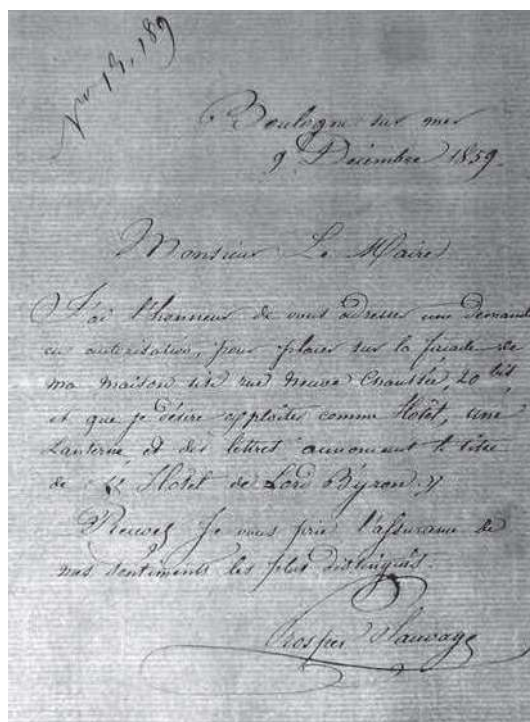 No 13,189
Boulogne sur mer
9 Décembre 1859.
Monsieur Le Maire
J'ai l'honneur de vous adresser une demande
en autorisation, pour placer sur la façade de
ma maison sise rue Neuve Chaussée, 20 bis
et que je désire exploiter comme Hôtel, une
Lanterne et des lettres annonçant le titre
de « Hotel de Lord Byron. »
Recevez je vous prie l'assurance de
mes sentiments les plus distingués.
Prosper Sauvage